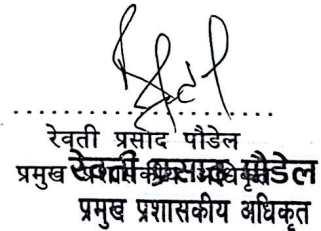 रेवती प्रसाद पौडेल
प्रमुख प्रशासकीय अधिकृत
रेवती प्रसाद पौडेल
प्रमुख प्रशासकीय अधिकृत